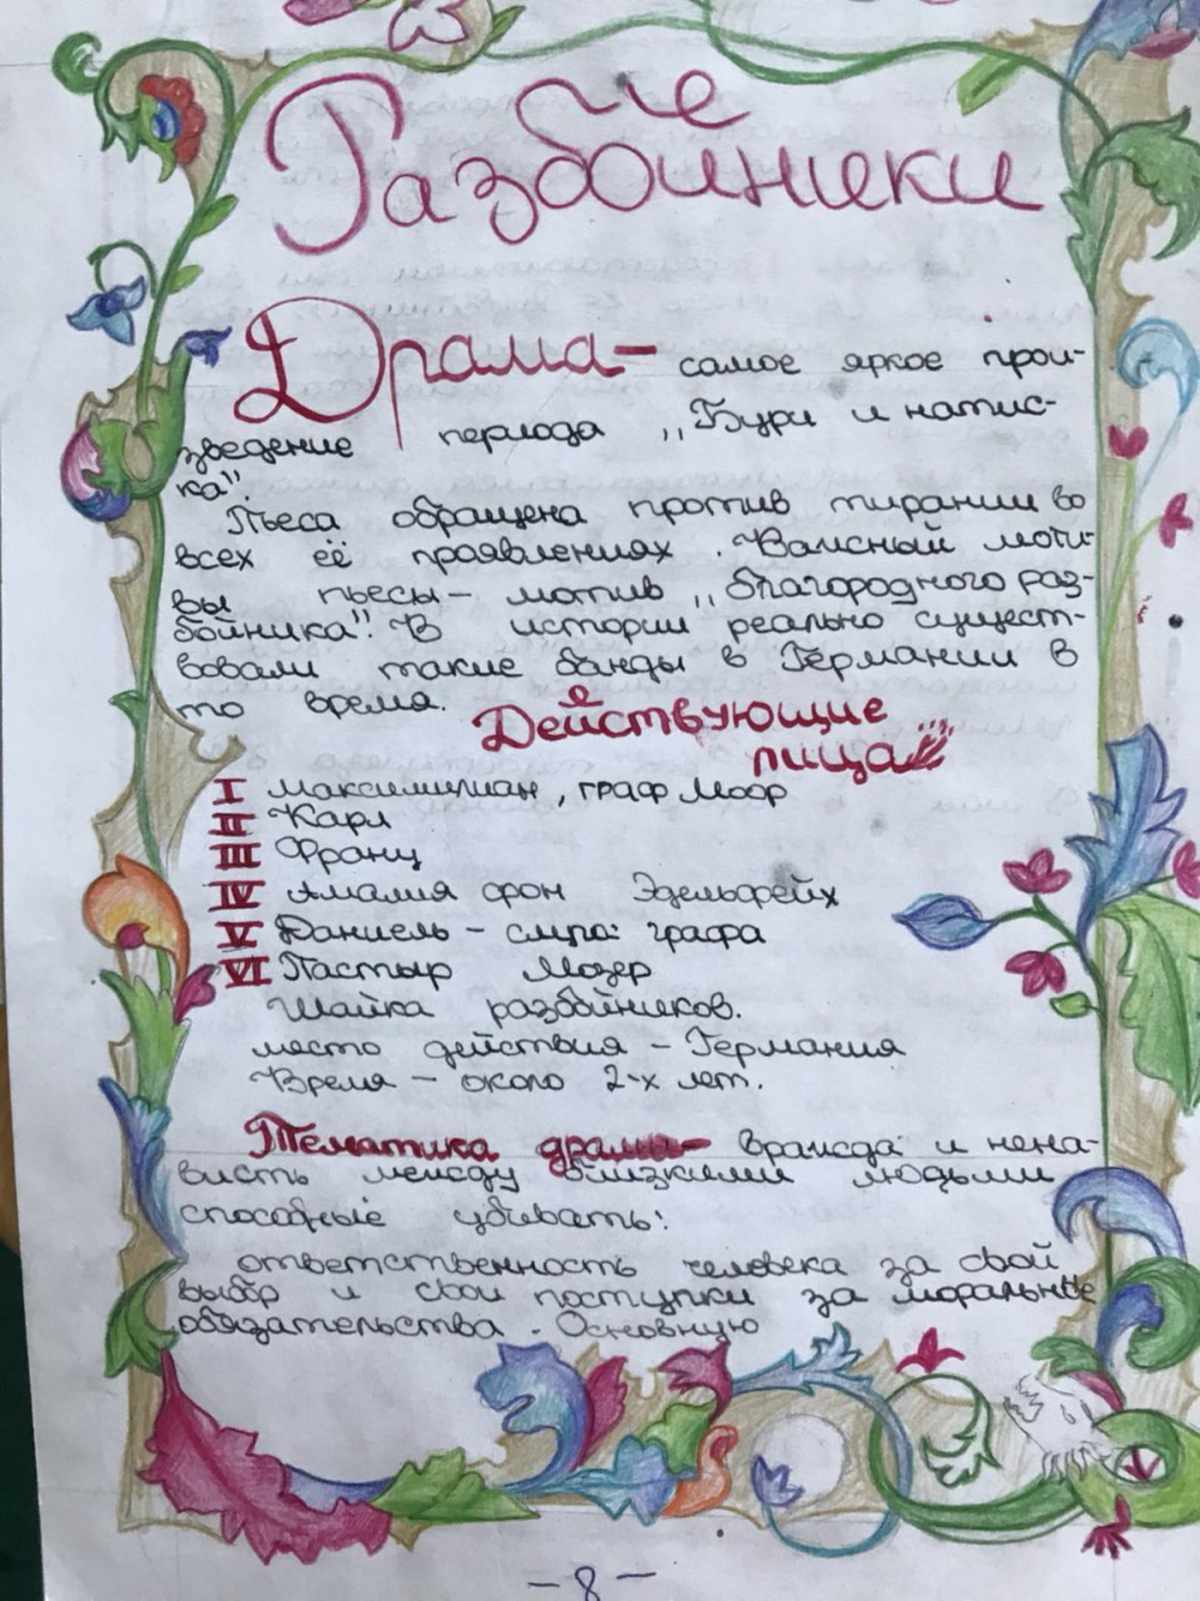 Разбойники
Драма- самое яркое прои-
зведение периода ,,Бури и натис-
ка".
Пьеса обращена против тирании во
всех её проявлениях. Важный моти-
вы пьесы- мотив ,,благородного раз-
бойника". В истории реально сущест-
вовали такие банды в Германии в
то время.
Действующие
лица
I Максимилиан, граф Моор
II Карл
III Франц
IV Амалия фон Эдельфейх
V Даниель - графа
VI Пастыр Мозер
Шайка разбойников.
место действия - Германия
Время - около 2-х лет.
Тематика драмы- вражда и нена-
висть между близкими людьми
способные убивать:
ответственность человека за свой
выбор и свои поступки за моральные
обязательства. Основную
-8-